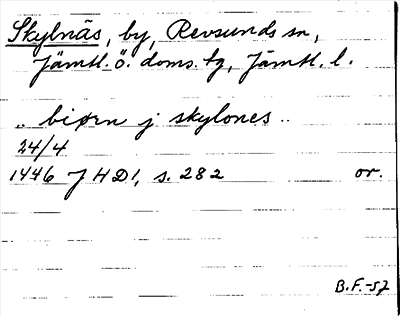 Skylnäs, by, Revsunds sn,
Jämtl. ö. doms. tg, Jämtl. l.
.. biørn j skylones ..
24/4
1446 JHD1, s. 282 or.
B.F.-57